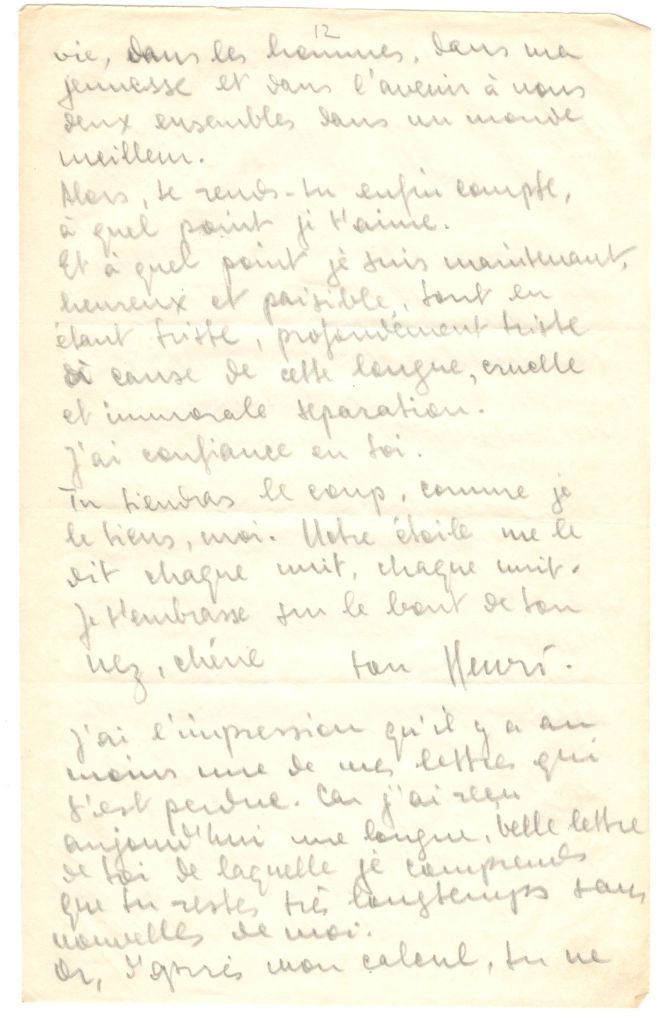 12
vie, dans les hommes, dans ma
jeunesse et dans l'avenir à nous
deux ensembles dans un monde
meilleur.
Alors, te rends-tu enfin compte,
à quel point je t'aime.
Et à quel point je suis maintenant,
heureux et paisible, tout en
étant triste, profondément triste
à cause de cette longue, cruelle
et immorale séparation.
J'ai confiance en toi.
Tu tiendras le coup, comme je
le tiens, moi. Notre étoile me le
dit chaque nuit, chaque nuit.
Je t'embrasse sur le bout de ton
nez, chérie ton Henri.
J'ai l'impression qu'il y a au
moins une de mes lettres qui
s'est perdue. Car j'ai reçu
aujourd'hui une longue, belle lettre
de toi de laquelle je comprends
que tu restes très longtemps sans
nouvelles de moi.
Or, d'après mon calcul, tu ne